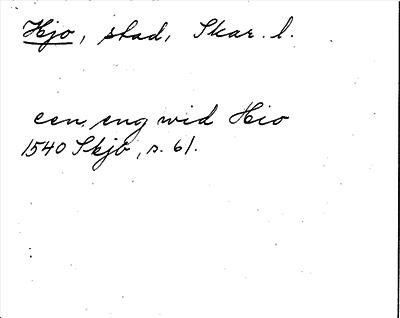 Hjo, stad, Skar. l.
een eng wid Hio
1540 Skjb, s. 61.